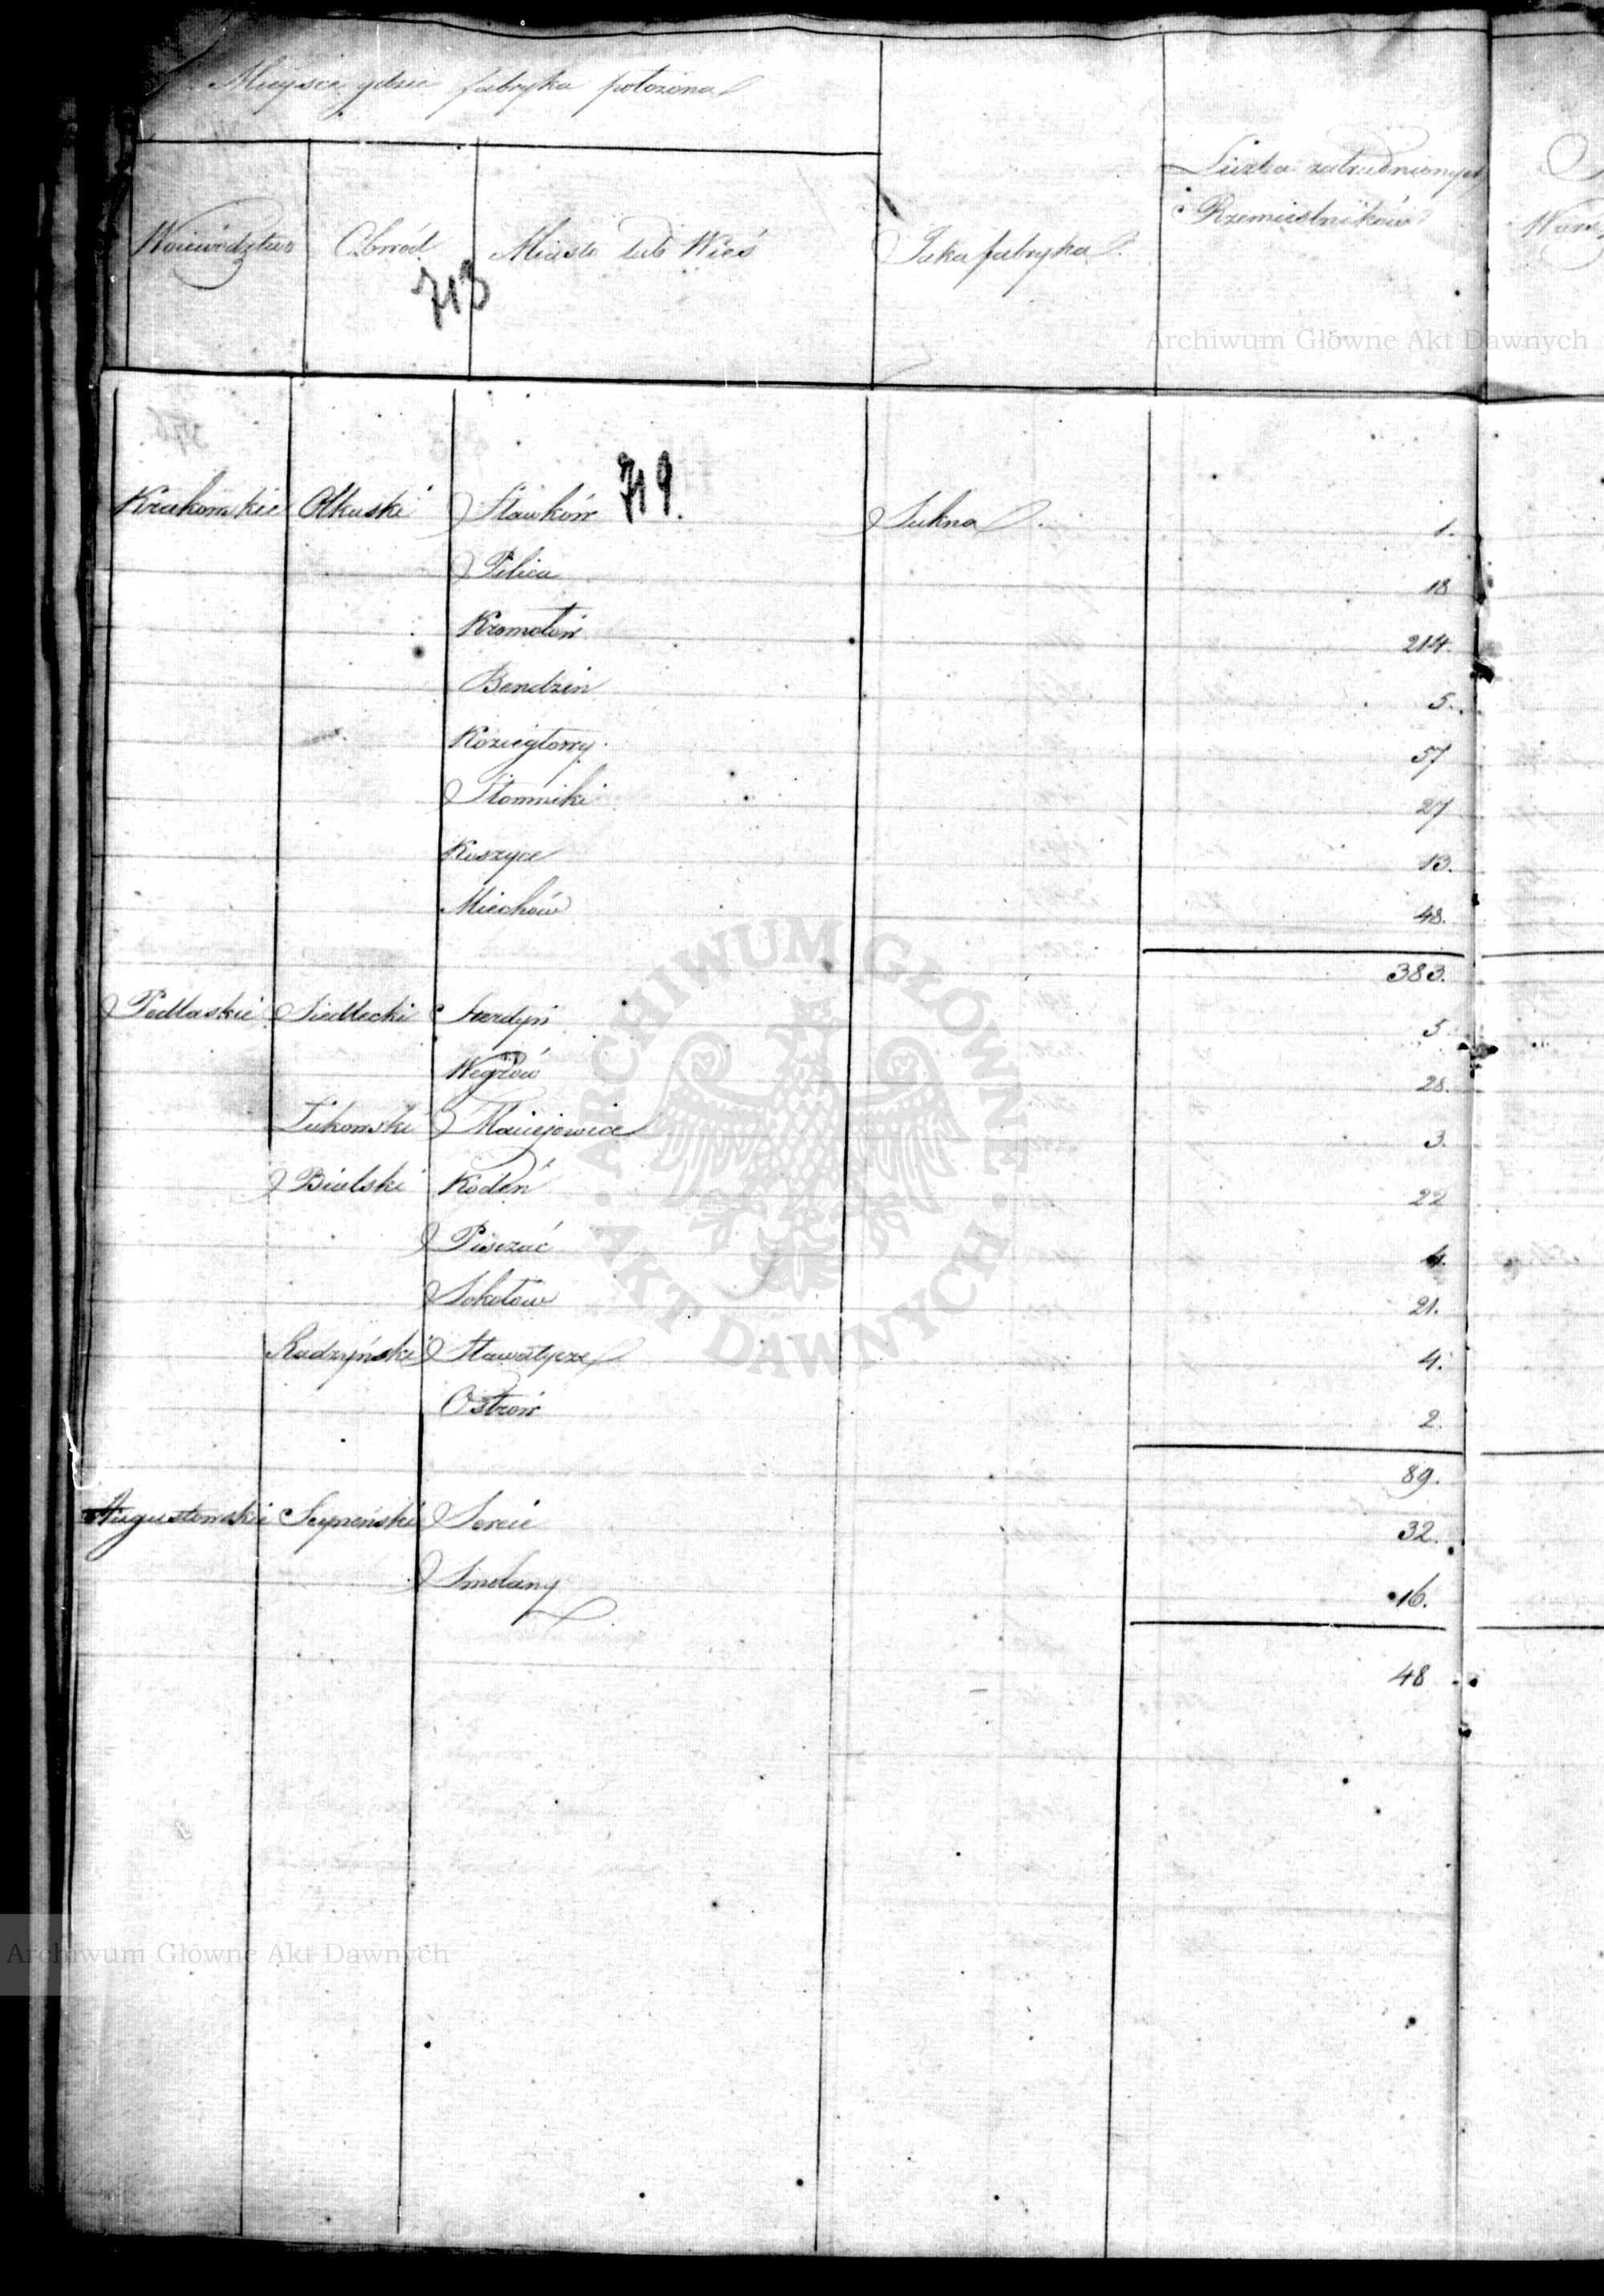 Mieysce gdzie fabryka położona
Liczba zatrudnionych
Rzemieslników
Woiewództwo Obwód Miasto lub Wieś Jaka fabryka
713
Archiwum Główne Akt Dawnych
719.
Krakowskie Olkuski Sławków Sukna 1.
Pilica 18
Kromołów 214.
Bendzin 5.
Koziegłowy 57
Słomniki 27
Koszyce 13.
Miechów 48.
383.
Podlaskie Siedlecki Sterdyń 5
Węgrów 28.
Łukowski Maciejowice 3.
Bialski Kodeń 22
Piszczac 4.
Sokołów 21.
Radzyński Sławatycze 4.
Ostrów 2.
89.
Augustowskie Seyneński Sereie 32.
Smolany 16.
48
ARCHIWUM GŁÓWNE
AKT DAWNYCH
Archiwum Główne Akt Dawnych